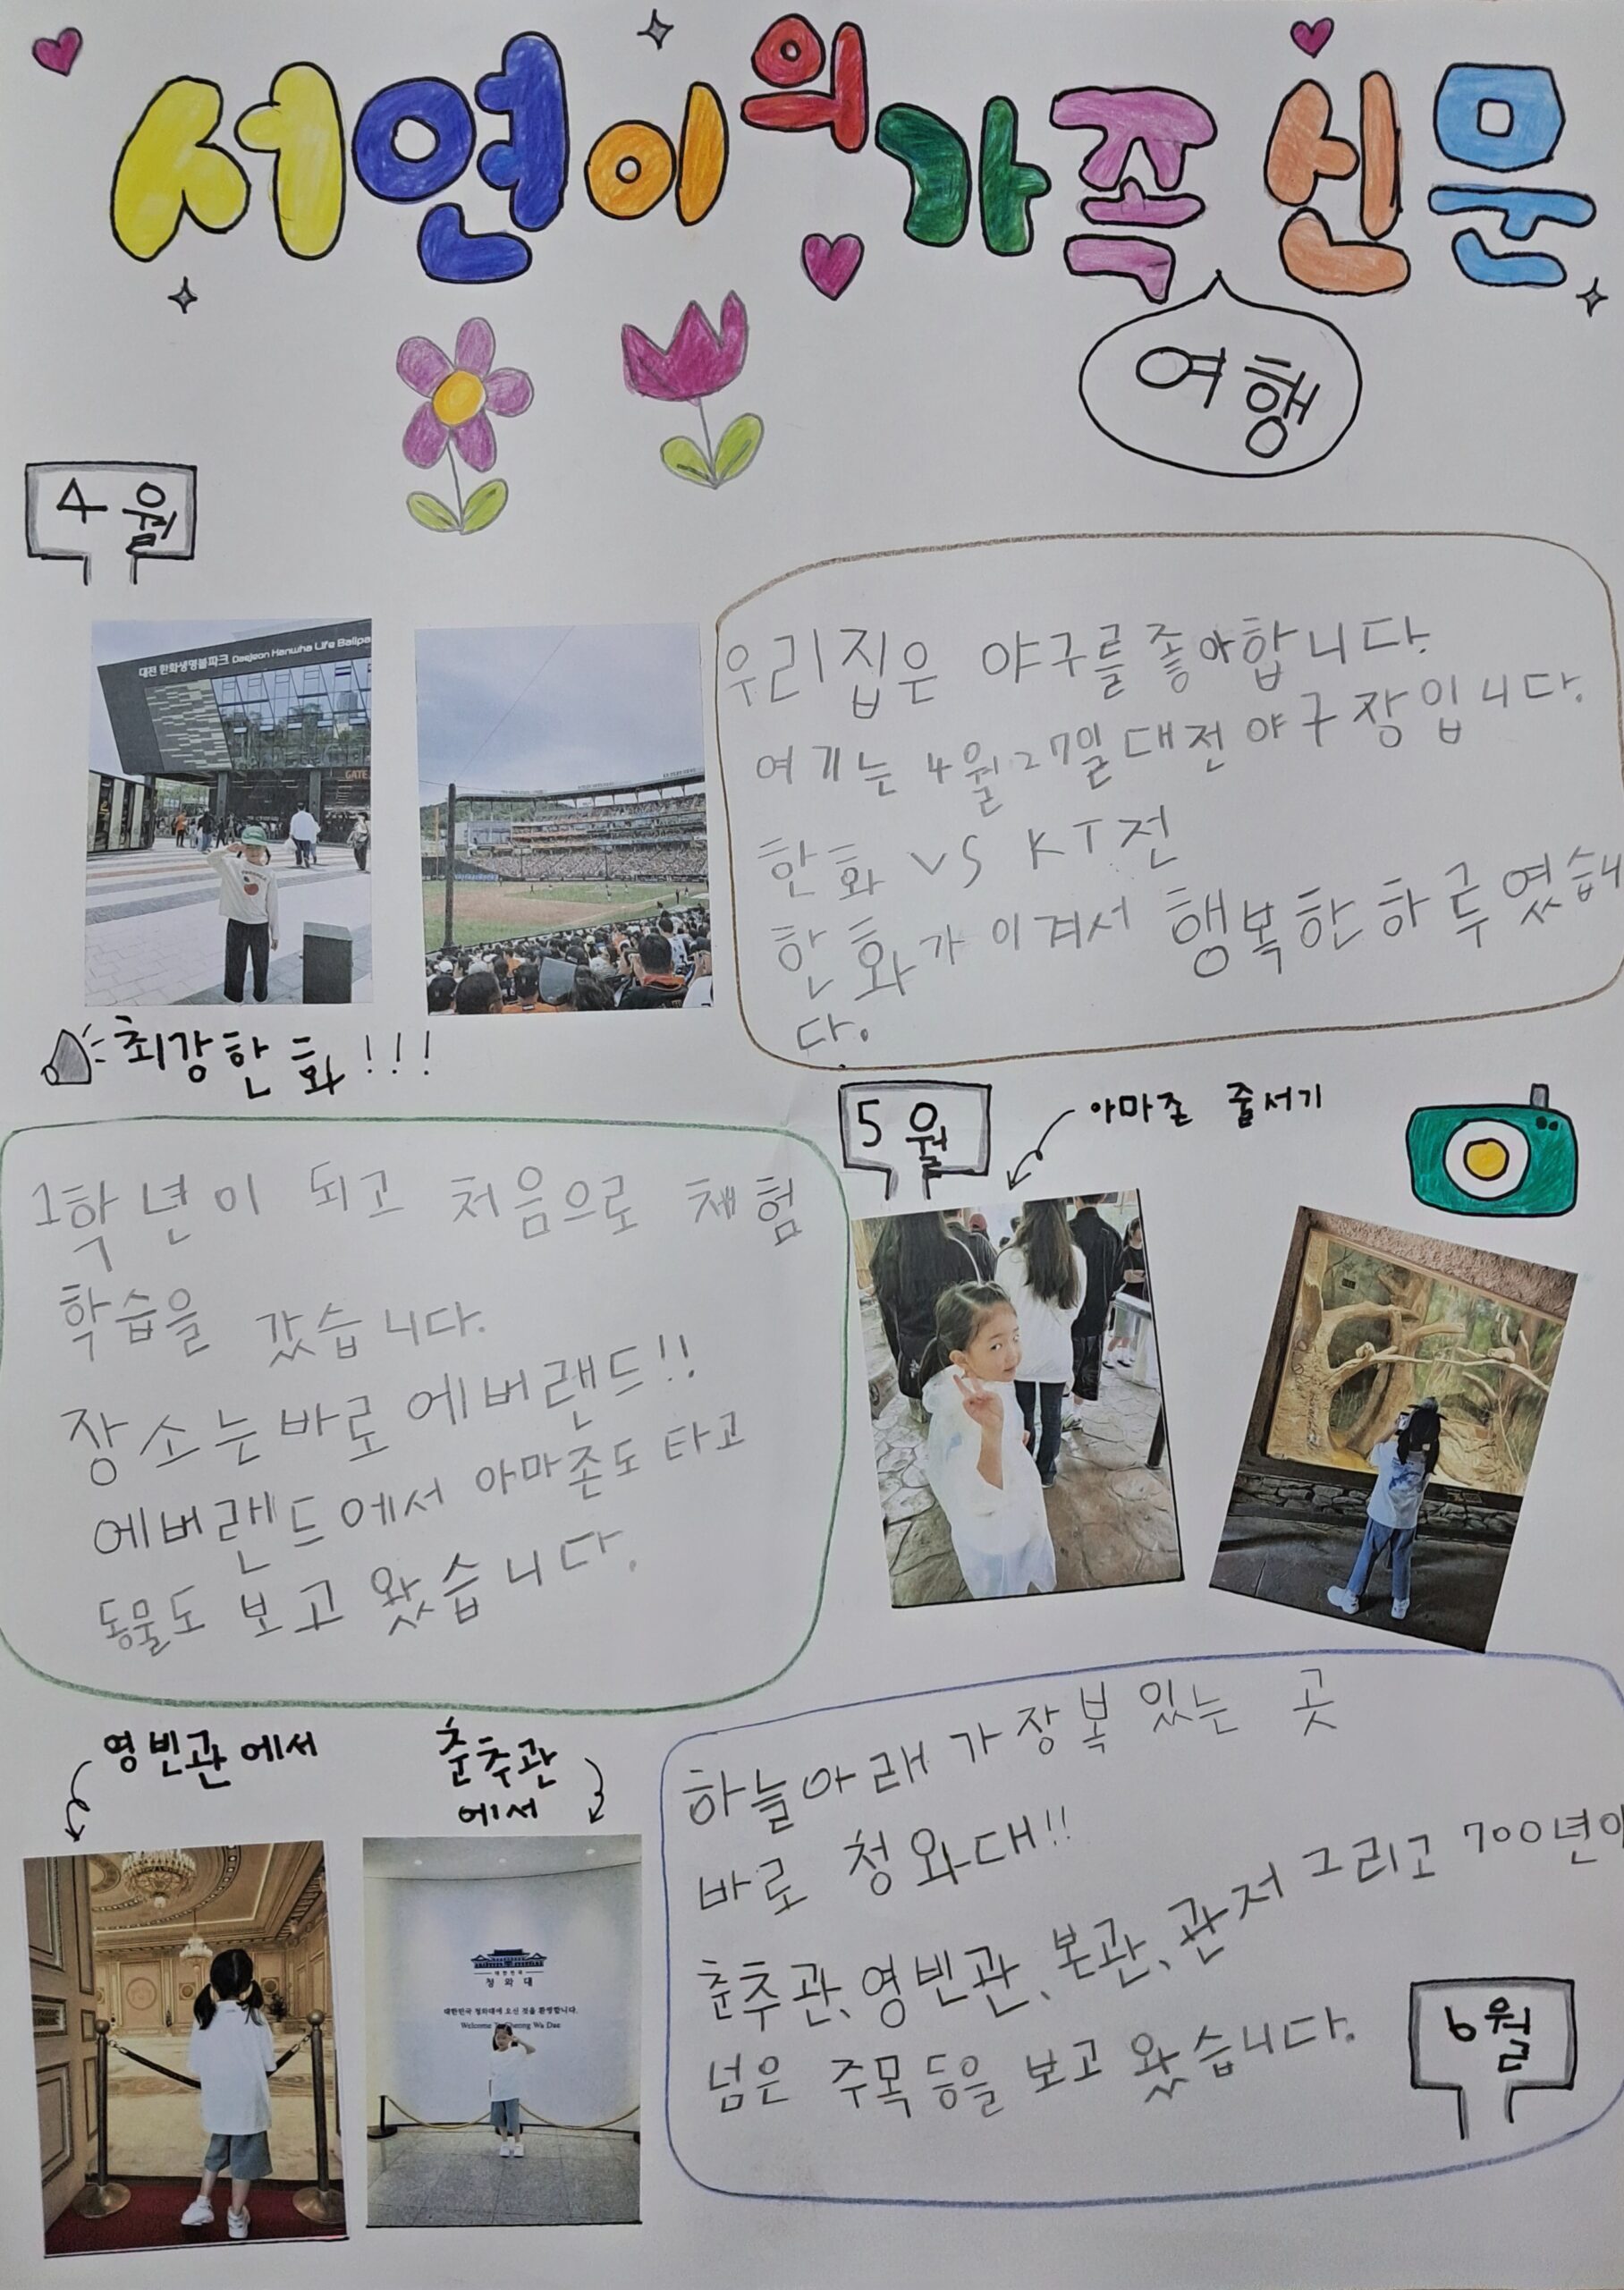 서연이의 가족 신문
여행
4월
대전 한화생명볼파크 Daejeon Hanwha Life Ballpa
GATE
우리집은 야구를좋아합니다.
여기는 4월27일대전야구장입니다.
한화 VS KT전
한화가이겨서 행복한하루였습니
다.
최강한화!!!
5월
아마존 줄서기
1학년이 되고 처음으로 체험
학습을 갔습니다.
장소는바로에버랜드!!
에버랜드에서 아마존도 타고
동물도 보고 왔습니다.
영빈관에서
춘추관
에서
대한민국
청와대
대한민국 청와대에 오신 것을 환영합니다.
Welcome To Cheong Wa Dae
하늘아래가장복있는 곳
바로 청와대!!
춘추관、영빈관、본관、관저그리고 700년이
넘은 주목등을 보고 왔습니다.
6월